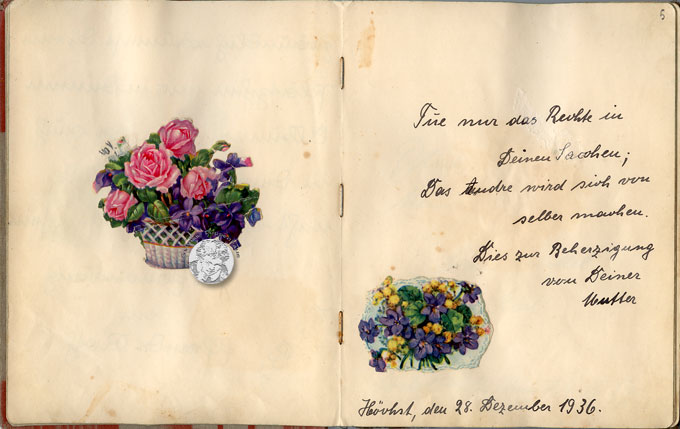 5
Tue nur das Rechte in
Deinen Sachen;
Das Andre wird sich von
selber machen.
Dies zur Beherzigung
von Deiner
Mutter
Höchst, den 28. Dezember 1936.